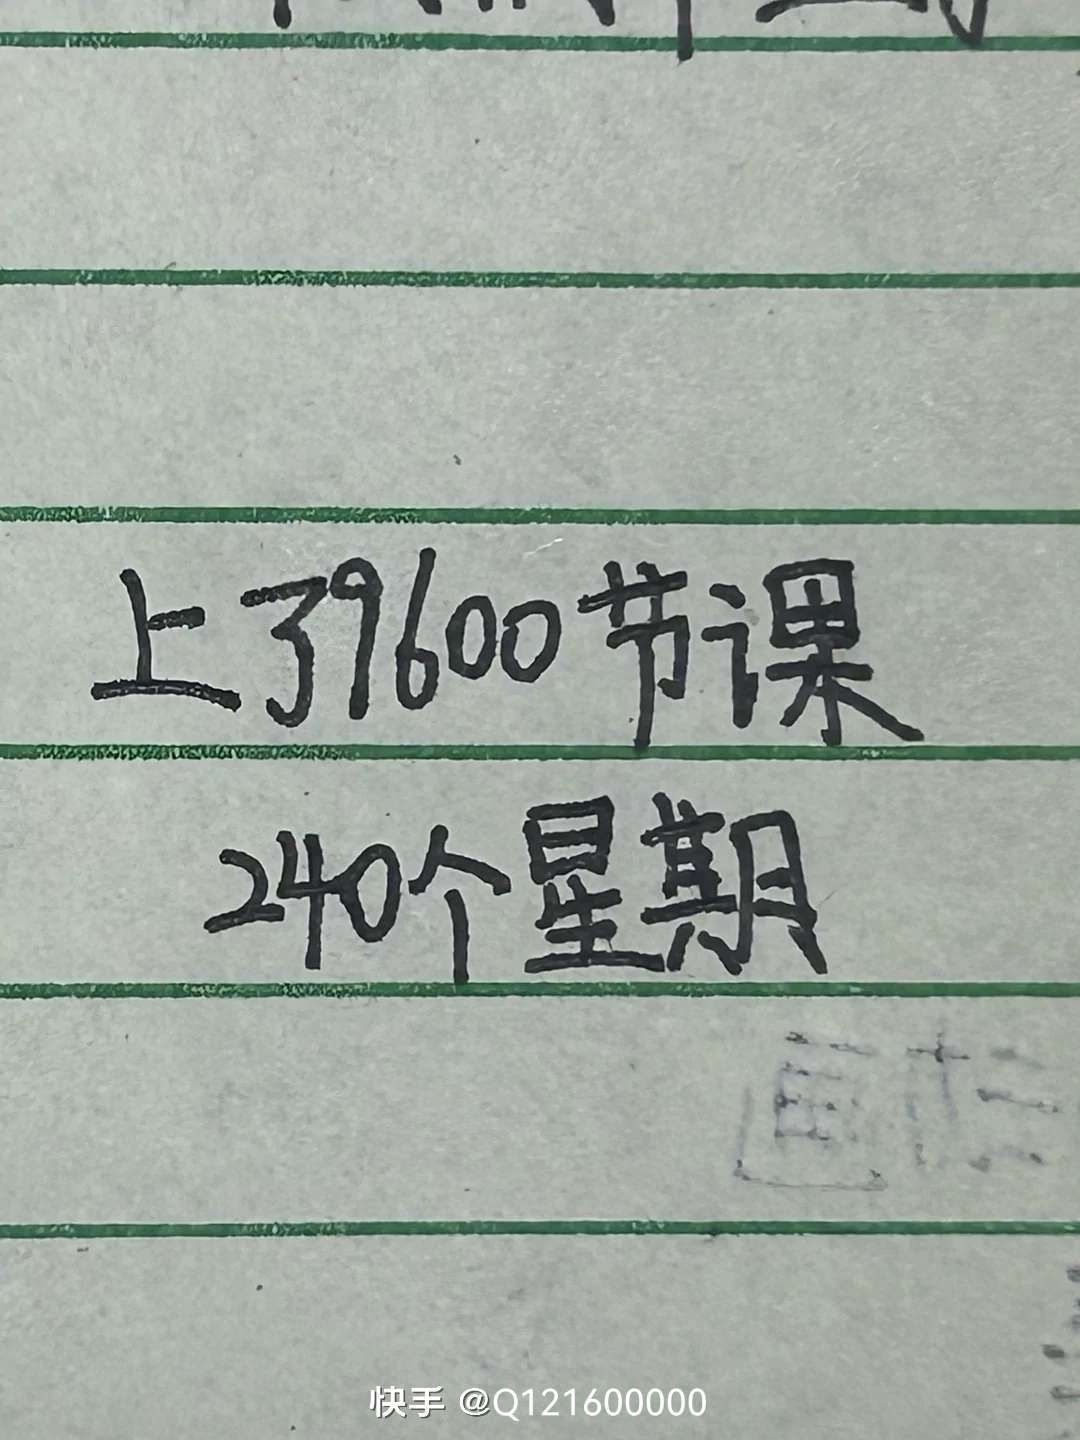 上了9600节课
240个星期
快手 @Q121600000